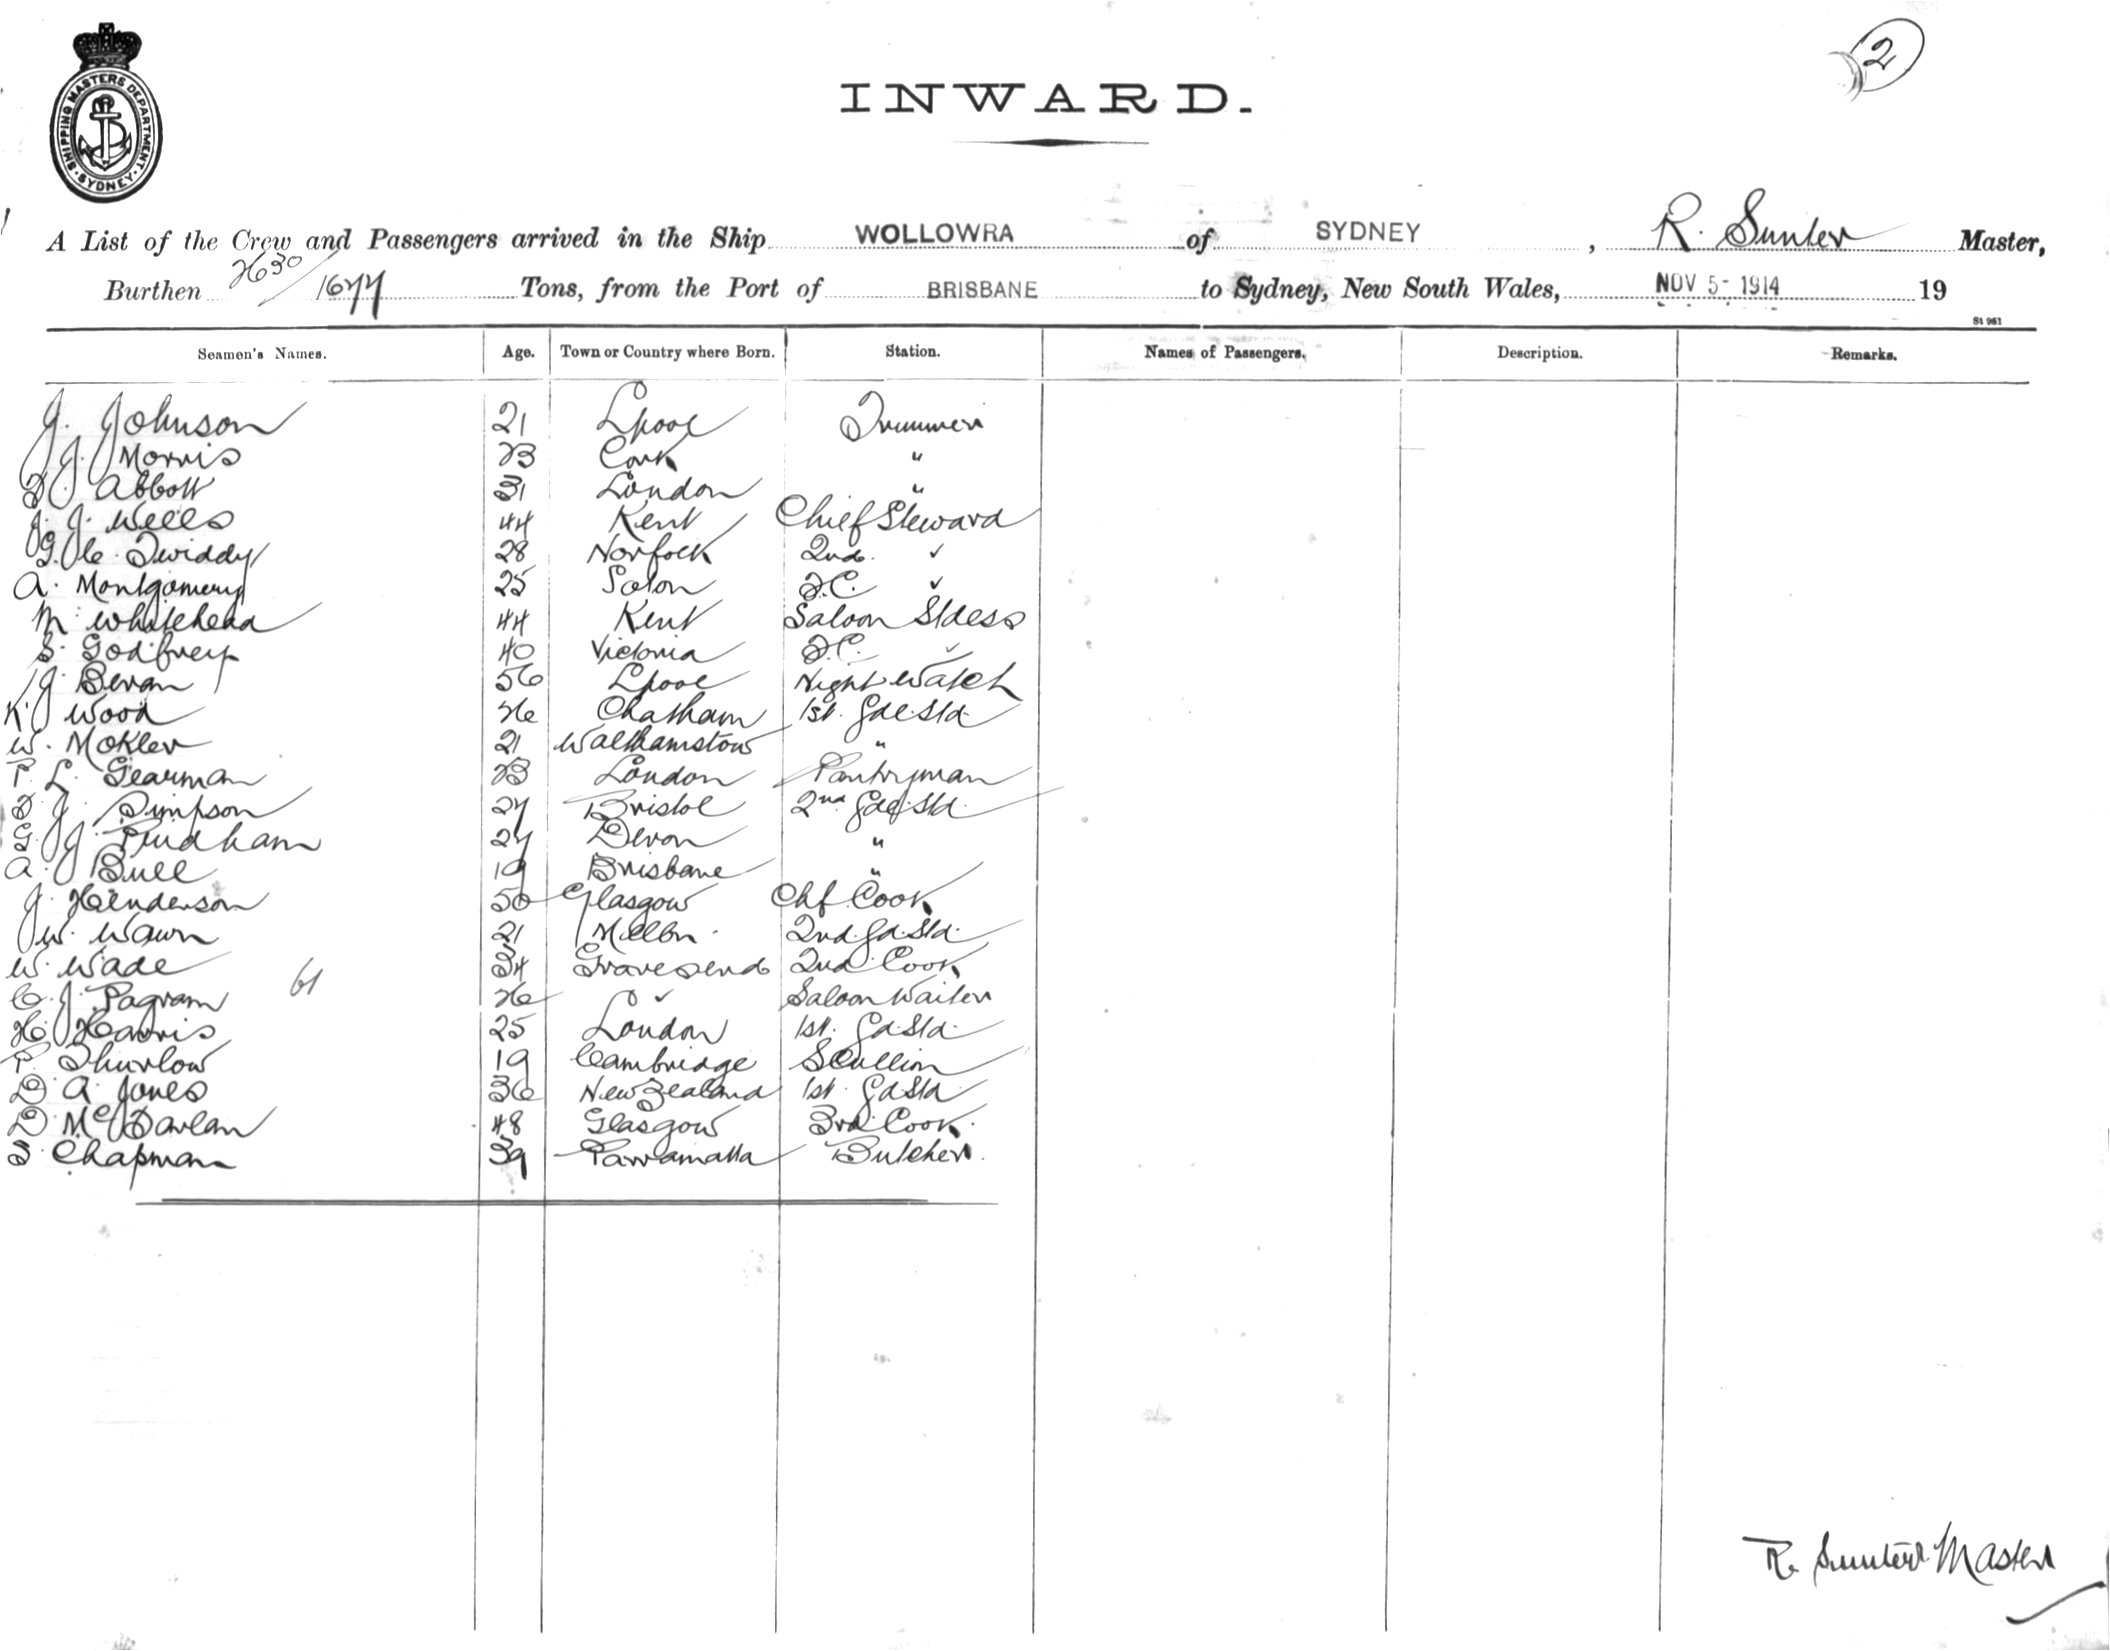 SHIPPING MASTERS DEPARTMENT. SYDNEY.
2
INWARD.
A List of the Crew and Passengers arrived in the Ship WOLLOWRA of SYDNEY, R. Sunter Master,
Burthen 2630/1677 Tons, from the Port of BRISBANE to Sydney, New South Wales, NOV 5-1914 19
St 961
Seamen's Names. Age. Town or Country where Born. Station. Names of Passengers. Description. Remarks.
J. Johnson 21 Lpool Trimmer
J. Morris 23 Cork "
Abbott 31 London "
J. J. Wells 44 Kent Chief Steward
G. C. Twiddy 28 Norfolk 2nd. "
A. Montgomery 25 F.C. "
M. Whitehead 44 Kent Saloon Stdess
S. Godfrey 40 Victoria F.C. "
J. Bevan 56 Lpool Night Watch
K. Wood 26 Chatham 1st. Std.
W. Mokler 21 Walthamstow "
P. L. Gearman 23 London Pantryman
J. Simpson 27 Bristol 2nd Std.
G. J. Prudham 27 Devon "
A. Bull 19 Brisbane "
J. Henderson 50 Glasgow Chf. Cook
W. Wawn 21 Melbn. 2nd. Gd. Std.
W. Wade 34 Gravesend 2nd Cook
61
C. J. Pagram 26 " Saloon Waiter
H. Harris 25 London 1st. Gd Std.
P. Thurlow 19 Cambridge Scullion
D. A. Jones 36 New Zealand 1st. Gd Std.
D. McDarlan 48 Glasgow 3rd Cook.
S. Chapman 39 Parramatta Butcher.
R. Sunter Master